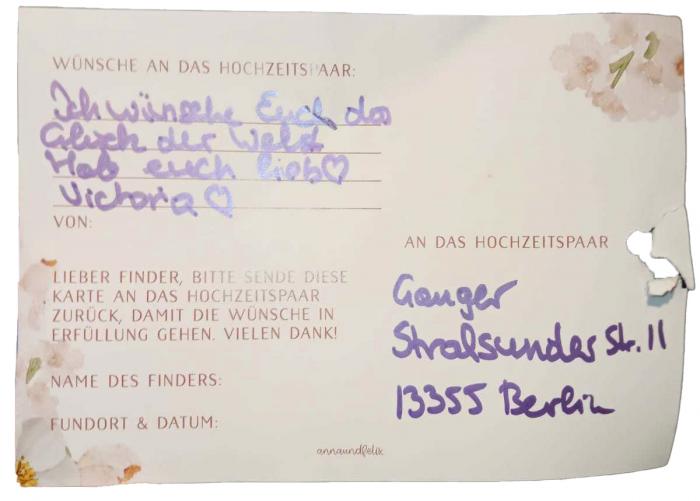 WÜNSCHE AN DAS HOCHZEITSPAAR:
Ich wünsche Euch das
Glück der Welt
Hab euch lieb♡
Victoria ♡
VON:
LIEBER FINDER, BITTE SENDE DIESE
KARTE AN DAS HOCHZEITSPAAR
ZURÜCK, DAMIT DIE WÜNSCHE IN
ERFÜLLUNG GEHEN. VIELEN DANK!
NAME DES FINDERS:
FUNDORT & DATUM:
AN DAS HOCHZEITSPAAR
Ganger
Stralsunder Str. 11
13355 Berlin
annaundfelix